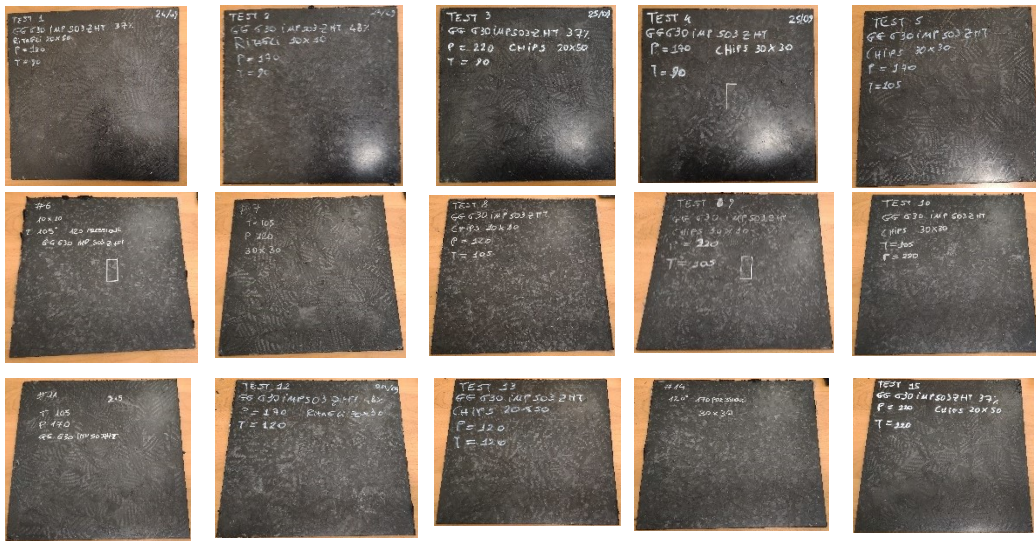 TEST 1 24/09
GG 630 IMP 503Z HT 37%
RITAGLI 20X50
P = 120
T = 90
TEST 2
GG 630 IMP503Z HT
RITAGLI
P = 170
T = 90
TEST 3 25/09
GG 630 IMP503Z HT 37%
P = 220 CHIPS 20X50
T = 90
TEST 4 25/09
GG 630 IMP503Z HT
P = 170 CHIPS 30X30
T = 90
TEST 5
GG 630 IMP503Z HT
CHIPS 30X30
P = 170
T = 105
#6
10X10
T 105° 120 PRESSIONE
GG 630 IMP 503Z HT
P 7
T = 105
P 220
30X30
TEST 8
GG 630 IMP503Z HT
CHIPS
P = 120
T = 105
TEST 9
GG 630 IMP503Z HT
CHIPS
P = 220
T = 105
TEST 10
GG 630 IMP503Z HT
CHIPS
T = 105
P = 220
#11
T 105
P 170
GG 630 IMP 503Z HT
TEST 12
GG 630 IMP503Z HT
P = 170 RITAGLI
T = 120
TEST 13
GG 630 IMP503Z HT
CHIPS 20X50
P = 120
T = 120
#14
120° 170 PRESSIONE
30X30
TEST 15
GG 630 IMP503Z HT 37%
P = 220 CHIPS 20X50
T = 120